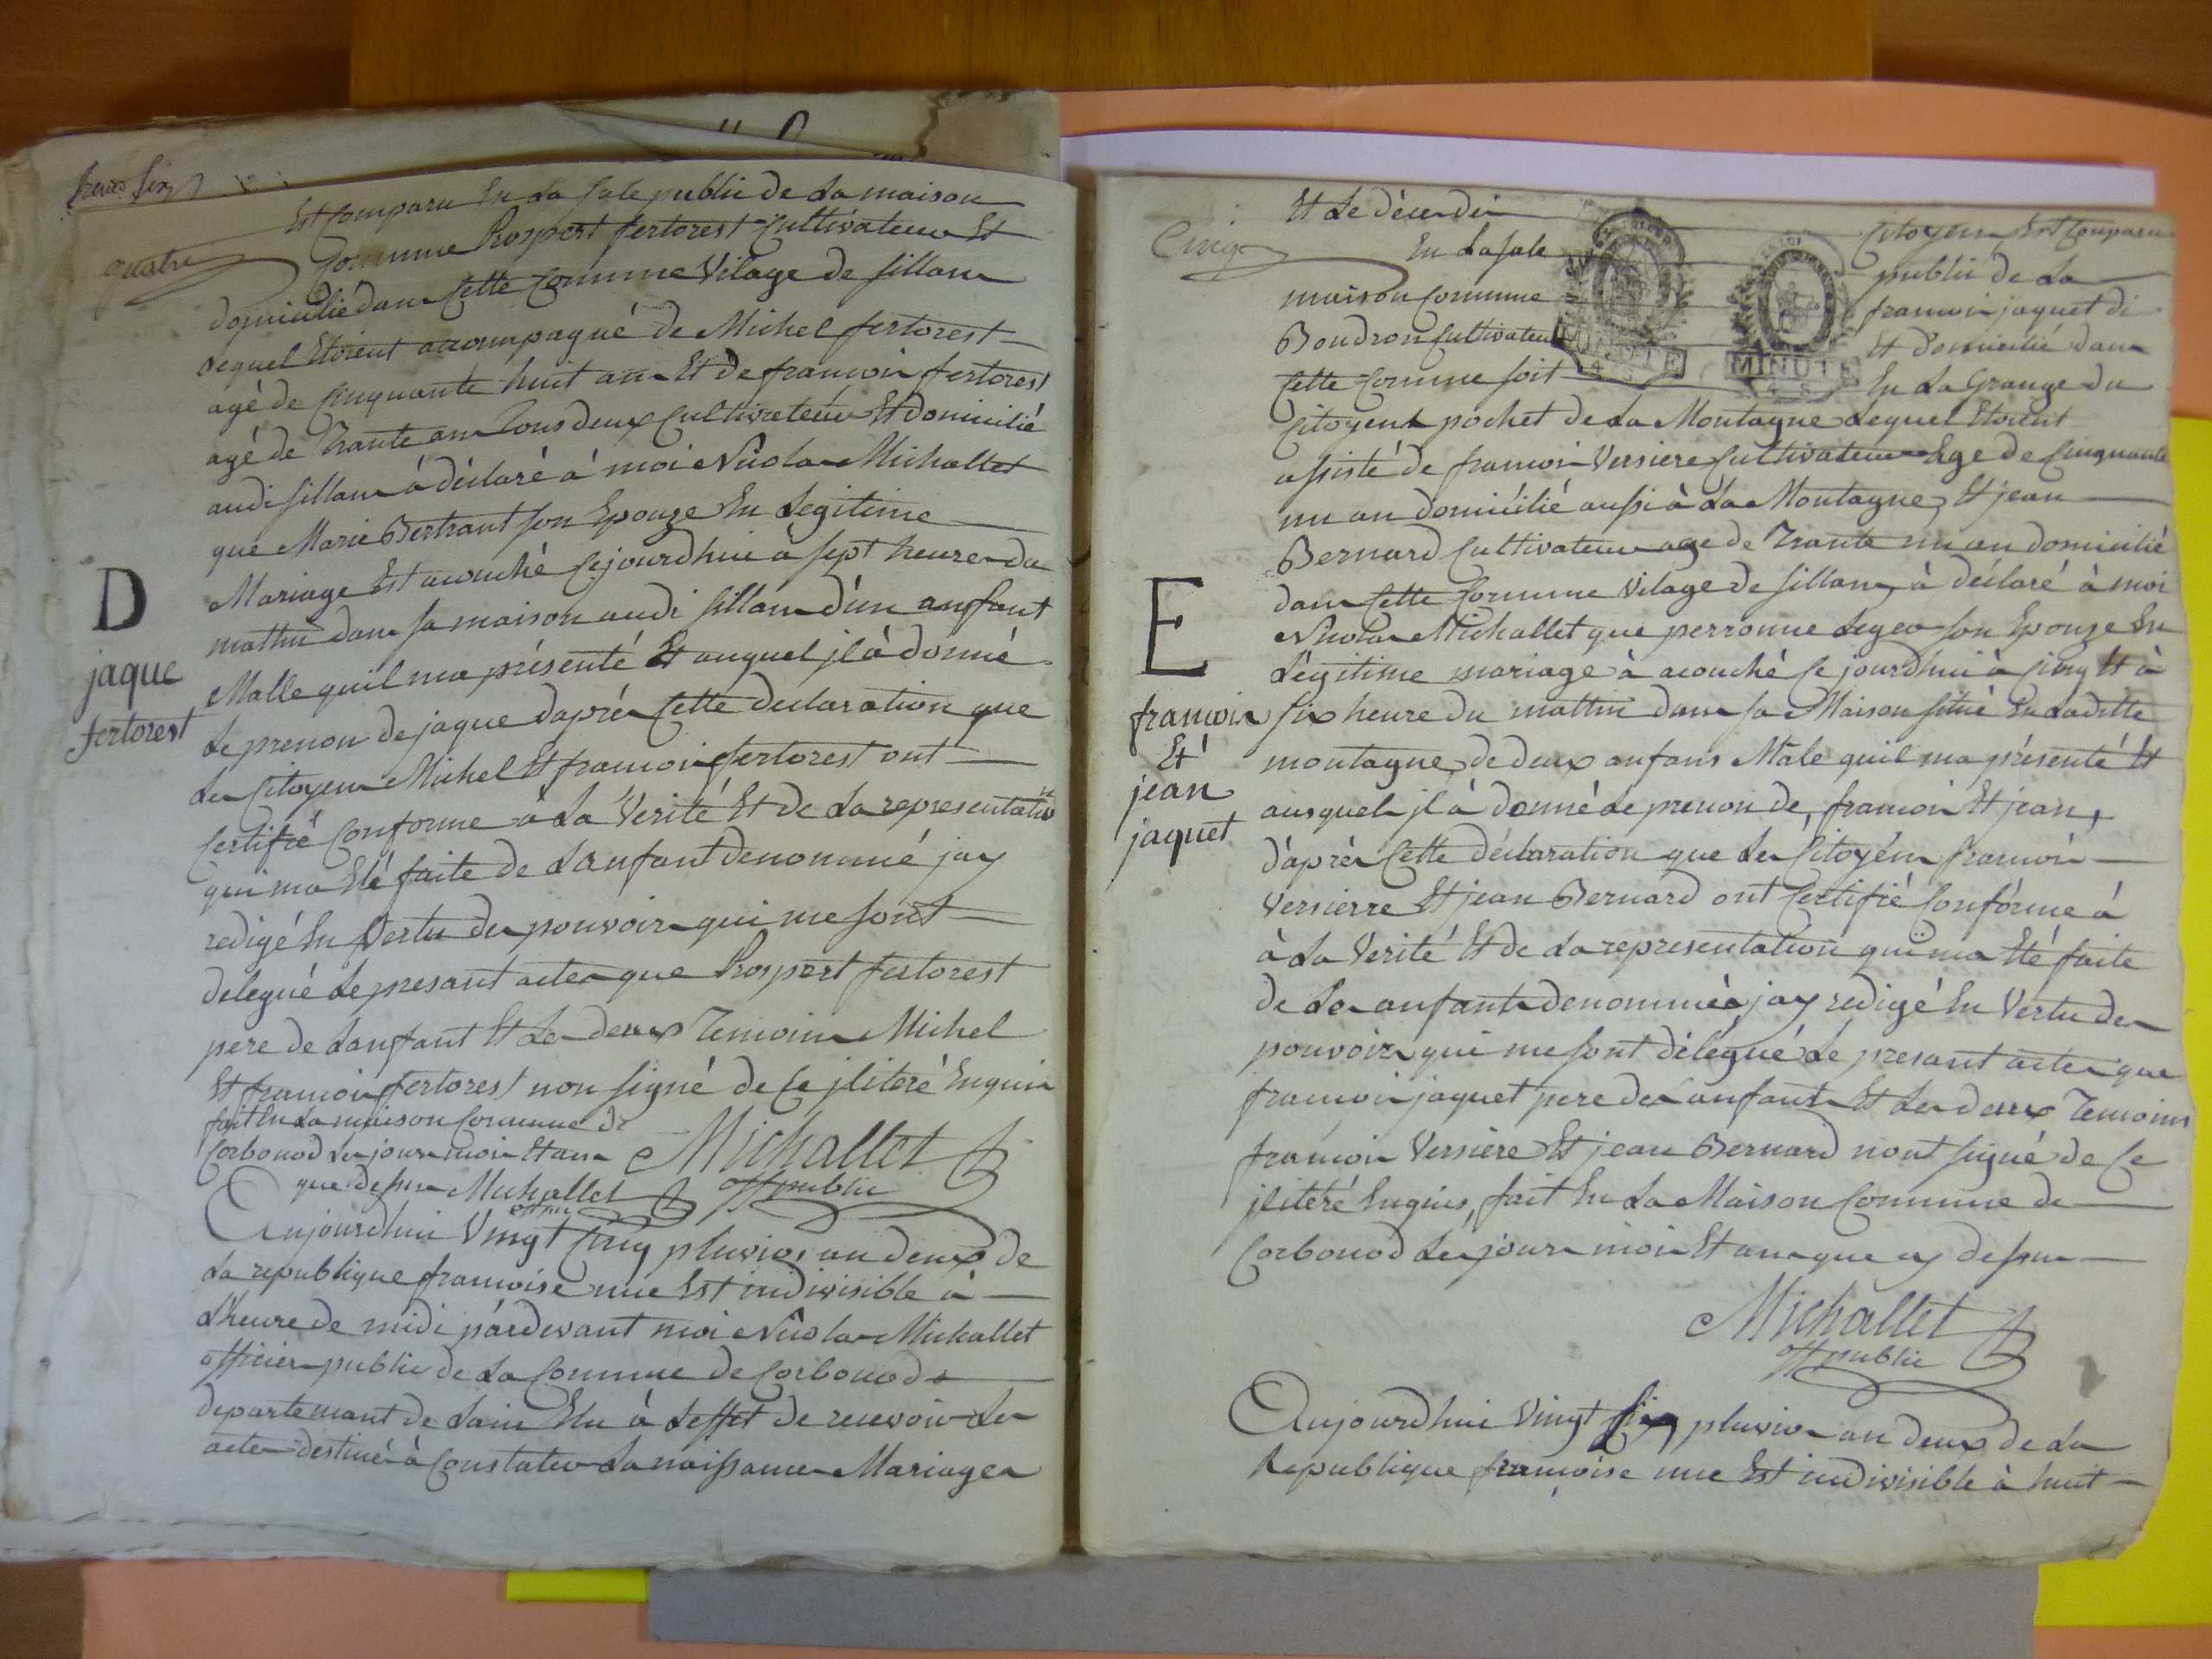 quatre
Est Comparu En La Sale public de La maison
Commune Prospert fertorest Cultivateur Et
domicilié dans Cette Commune Vilage de sillans
Lequel Etoient accompagné de Michel fertorest
agé de Cinquante huit ans Et de francois fertorest
agé de Trante ans Tous deux Cultivateur Et domicilié
audi sillans à déclaré à moi Nicolas Michallet
que Marie Bertrant son Epouze En Legitime
Mariage Est acouché Cejourdhui à sept heures du
mattin dans sa maison audi sillans d'un anfant
Malle quil ma présenté Et auquel jl à donné
Le prenon de jaque daprès Cette declaration que
Les Citoyens Michel Et francois fertorest ont
Certifié Conforme a La Verité Et de La representation
qui ma Eté faite de Lanfant denommé jay
redigé En Vertu des pouvoirs qui me sont
delegué Le presant actes que Prospert fertorest
pere de Lanfant Et Les deux Temoins Michel
Et francois fertorest non signé de Ce jliteré Enquis
fait En La maison Commune de
Corbonod Les jours mois Et ans
que dessus Michallet
off pu
Michallet
off public
D
jaque
fertorest
Aujourdhui Vingt Cinq pluvios an deux de
La republique francoise une Est indivisible à
L'heure de midi pardevant moi Nicolas Michallet
officier public de La Commune de Corbonod
departemant de Lain Elu à Leffet de recevoir Les
actes destiné à Constater La naissances Mariages
Cinq
Et Le décès des Citoyens Est Comparu
En La sale public de La
maison Commune francois jaquet di
Boudron Cultivateur Et domicilié dans
Cette Commune soit En La Grange du
MINUTE
Citoyent pochet de La Montagne Lequel Etoient
assisté de francois Versiere Cultivateur Age de Cinquante
un an domicilié aussi à La Montagne, Et jean
Bernard Cultivateur age de Trante un an domicilié
dans Cette Commune Vilage de sillans, à déclaré à moi
Nicolas Michallet que perronne Leger son Epouze En
Légitime mariage à acouché Ce jourdhui à Cinq Et à
six heure du mattin dans sa Maison situé En Laditte
montagne, de deux anfans Mâle quil ma présenté Et
ausquels jl à donné Le prenon de, francois Et jean,
d'après Cette déclaration que Les Citoyéns francois
Versierre Et jean Bernard ont Certifié Confórme á
à La Verité Et de La representation qui ma Eté faite
de Les anfants denommées jay redigé En Vertu des
pouvoirs qui me sont délegué Le presant actes que
francois jaquet pere des anfants Et Les deux Temoins
francois Versiere Et jean Bernard nont signé de Ce
jliteré Enquis, fait En La Maison Commune de
Corbonod Les jours mois Et ans que cy dessus
Michallet
off public
E
francois
Et
jean
jaquet
Aujourdhui Vingt pluvios an deux de La
Republique françoise une Est indivisible à huit